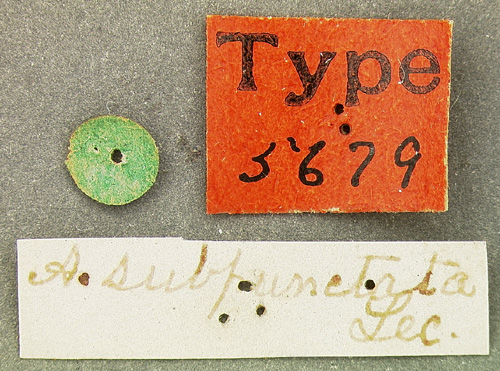 Type
5679
A. subpunctata
Lec.